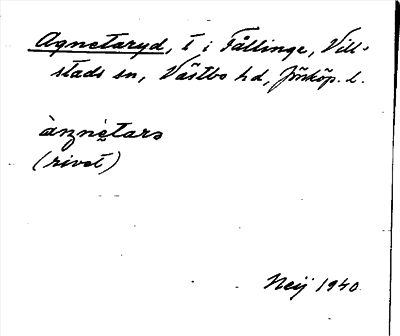 Agnetaryd, t i Tållinge, Vill-
stads sn, Västbo hd, Jönköp. l.
àŋnètars
(rivet)
Neij 1940